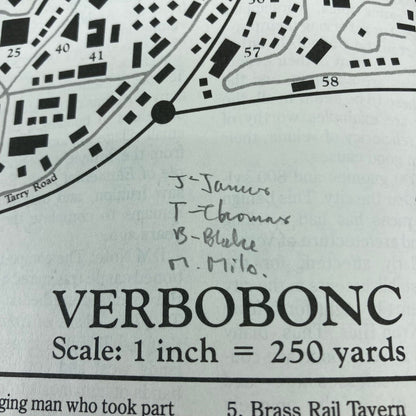 40
25
41
57
58
Tarry Road
J-James
T-Thomas
B-Blake
M. Milo.
VERBOBONC
Scale: 1 inch = 250 yards
ging man who took part
5. Brass Rail Tavern